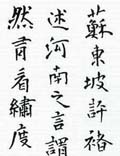 蘇東坡許褚
述河南之言謂
然肯看繡度